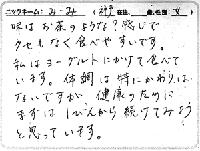 ニックネーム: み-みみ
味はお茶のような?感じで
クセもなく食べやすいです。
私はヨーグルトにかけて食べて
います。体調は特にかわりは
ないですが、健康のために
まずは1びんから続けてみよう
と思っています。